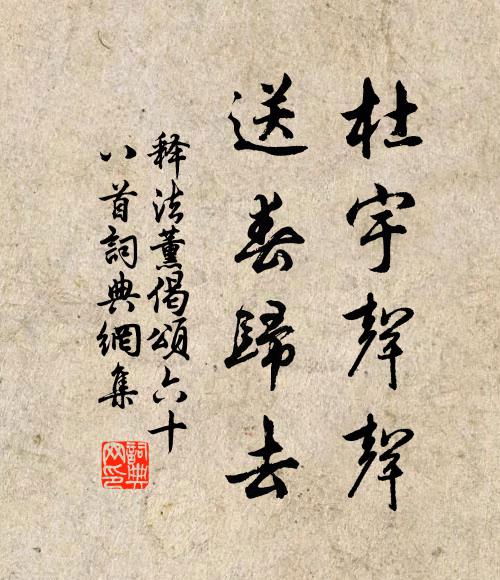 杜宇聲聲
送春歸去
释法薰偈頌六十
八首詞典網集
詞典網印